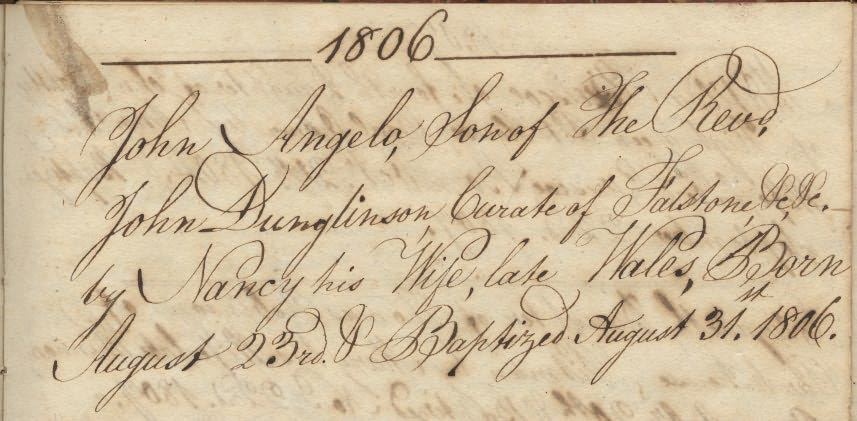 1806
John Angelo, Son of The Revd.
John Dunglinson, Curate of Falstone, &c, &c.
by Nancy his Wife, late Wales, Born
August 23rd. & Baptized August 31st. 1806.